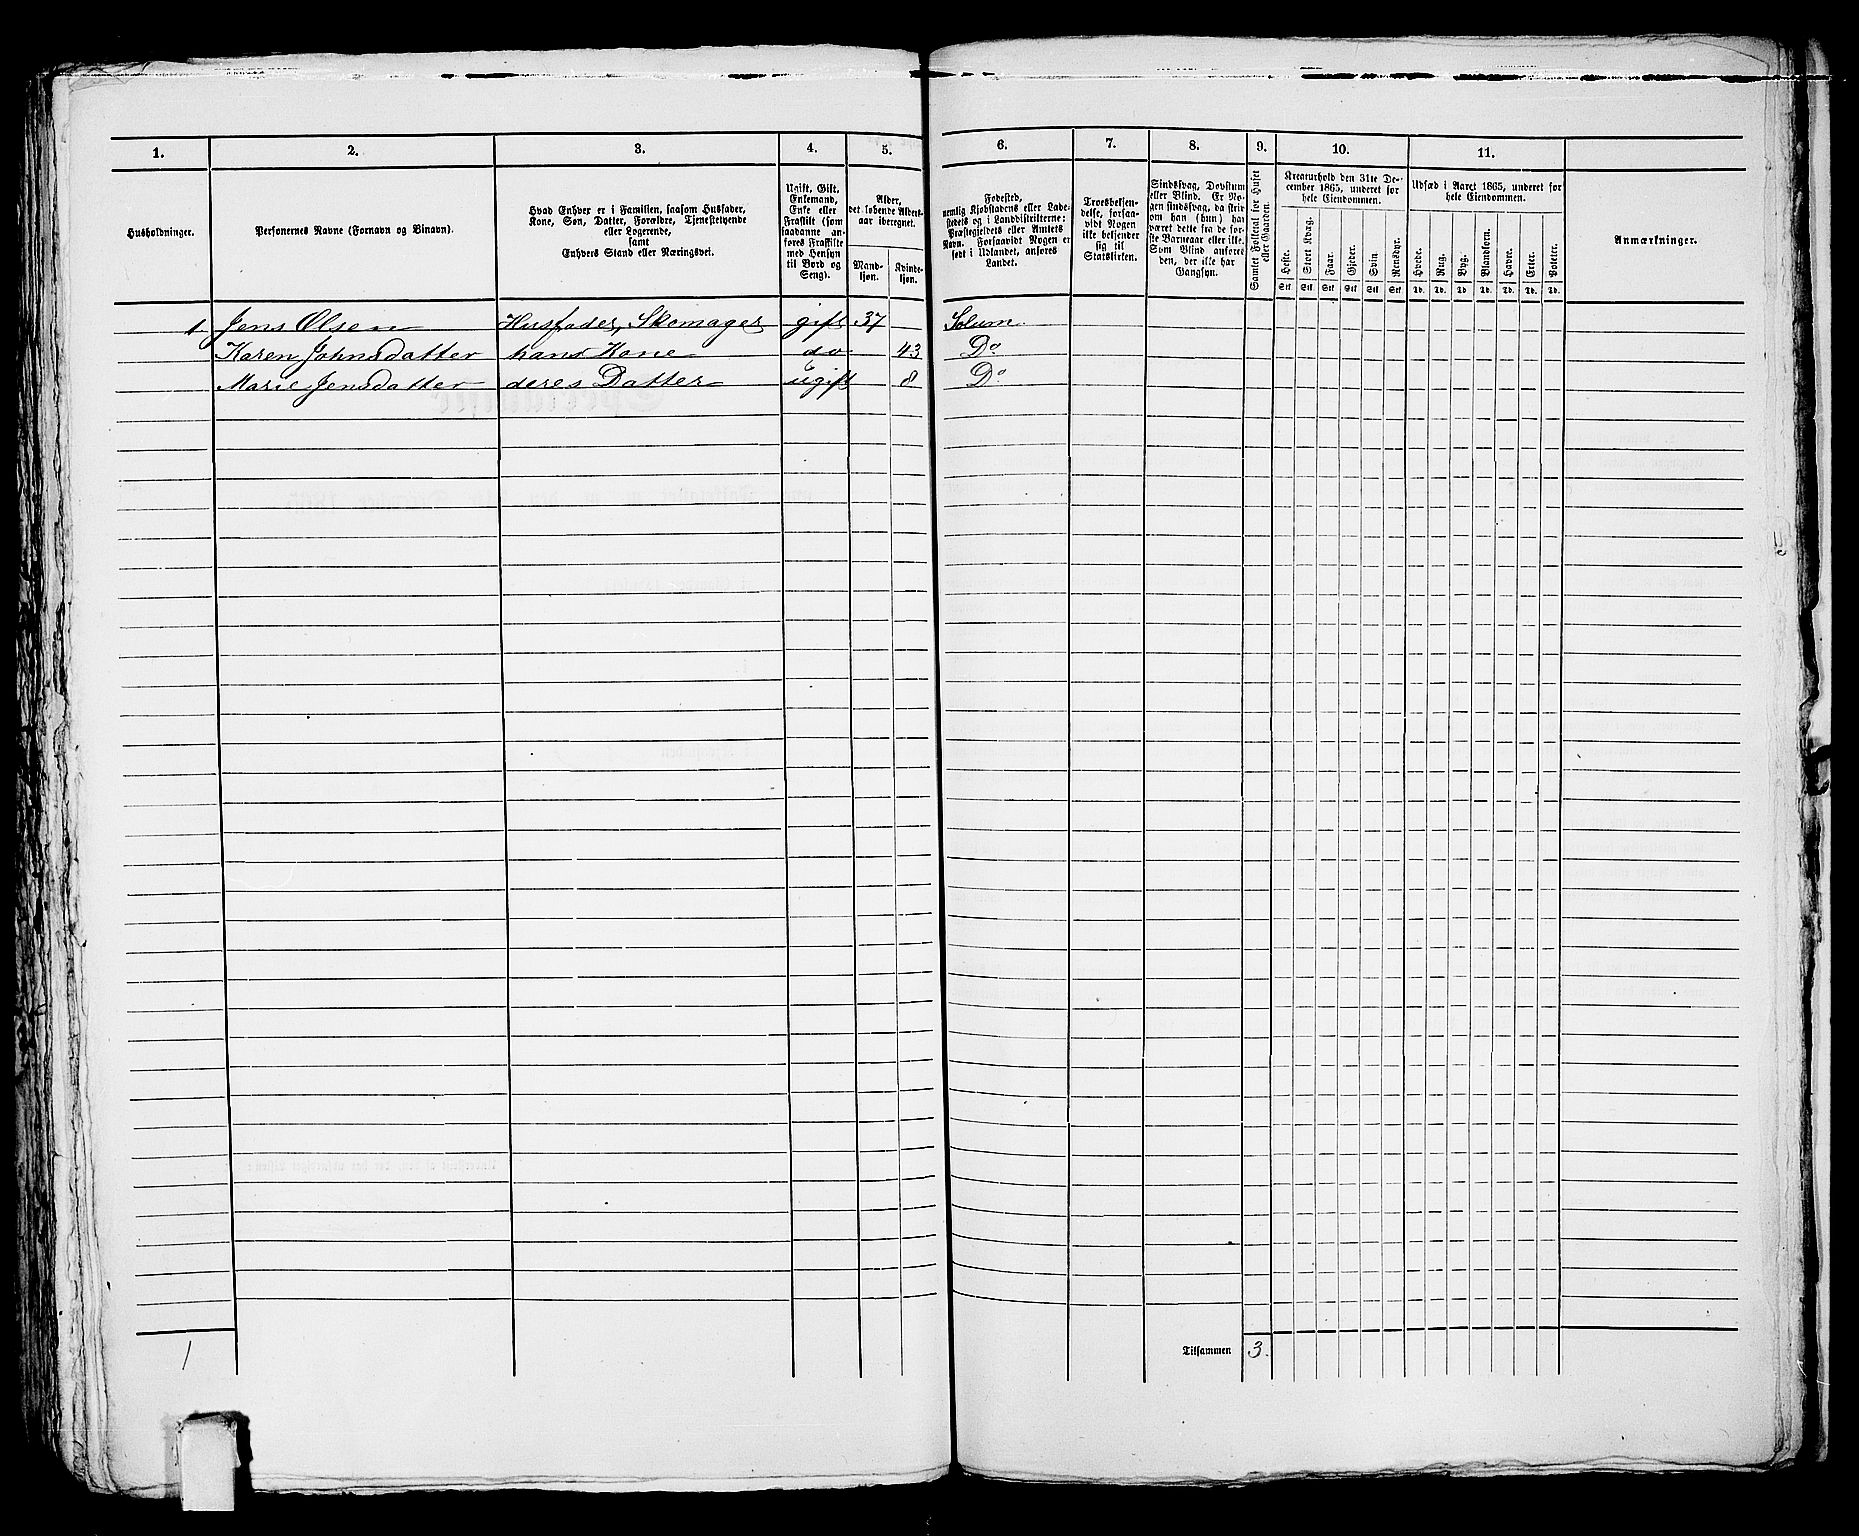 1. 2. 3. 4. 5. 6. 7. 8. 9. 10. 11.
Husholdninger.
Personernes Navne (Fornavn og Binavn).
Hvad Enhver er i Familien, saasom Husfader,
Kone, Søn, Datter, Forældre, Tjenestetyende
eller Logerende,
samt
Enhvers Stand eller Næringsvei.
Ugift, Gift,
Enkemand,
Enke eller
Fraskilt (som
saadanne an-
føres Fraskilte
med Hensyn
til Bord og
Seng).
Alder,
det løbende Alders-
aar iberegnet.
Mand-
kjøn.
Kvinde-
kjøn.
Fødested,
nemlig Kjøbstadens eller Lade-
stedets og i Landdistrikterne:
Præstegjeldets eller Amtets
Navn. Forsaavidt Nogen er
født i Udlandet, anføres
Landet.
Troesbekjen-
delse, forsaa-
vidt Nogen
ikke bekjender
sig til
Statskirken.
Sindssvag, Døvstum
eller Blind. Er No-
gen sindssvag, da skri-
ves om han (hun) har
været dette fra de før-
ste Barneaar eller ikke.
Som Blind anføres
den, der ikke har
Gangsyn.
Samlet Folketal for Huset
eller Gaarden.
Kreaturhold den 31te De-
cember 1865, underet for
hele Eiendommen.
Heste. Stort Kvæg. Faar. Gjeder. Svin. Rensdyr.
Stk Stk Stk Stk Stk Stk
Udsæd i Aaret 1865, underet for
hele Eiendommen.
Hvede. Rug. Byg. Blandkorn. Havre. Erter. Poteter.
Td. Td. Td. Td. Td. Td. Td.
Anmærkninger.
1 Jens Olsen Husfader, Skomager gift 37 Solum
Karen Johnsdatter hans Kone do 43 Do
Marie Jensdatter deres Datter ugift 8 Do
1 Tilsammen 3.